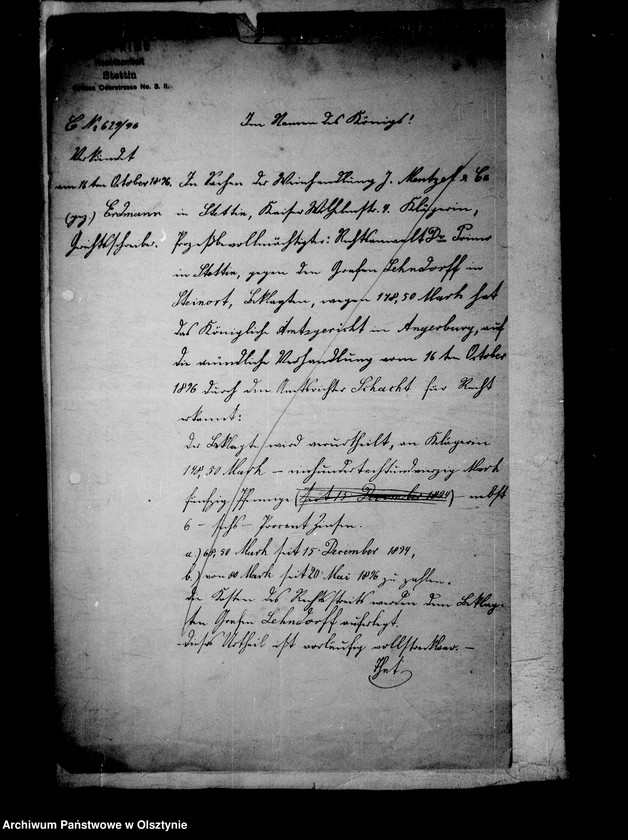 Rechtsanwalt
Stettin
Grosse Oderstrasse No. 3. II.
C No 629/96
Im Namen des Königs!
Verkündet
am 16ten October 1896.
(gez.) Erdmann
Gerichtsschreiber.
In Sachen der Weinhandlung J. Mentzel & Co
in Stettin, Kaiser Wilhelmstr. 4. Klägerin,
Prozeßbevollmächtigter: Rechtsanwalt Dr
in Stettin, gegen den Grafen Lehndorff in
Steinort, Beklagten, wegen 148,50 Mark hat
das Königliche Amtsgericht in Angerburg, auf
die mündliche Verhandlung vom 16ten October
1896 durch den Amtsrichter Schacht für Recht
erkannt:
Der Beklagte wird verurtheilt, an Klägerin
148,50 Mark – einhundertachtundvierzig Mark
fünfzig Pfennige (seit 15 December 1894) – nebst
6 – sechs – Procent Zinsen.
a.) 68,50 Mark seit 15 December 1894,
b.) von 80 Mark seit 20 Mai 1896 zu zahlen.
Die Kosten des Rechtsstreits werden dem Beklag-
ten Grafen Lehndorff auferlegt.
Dieses Urtheil ist vorläufig vollstreckbar. –
Archiwum Państwowe w Olsztynie